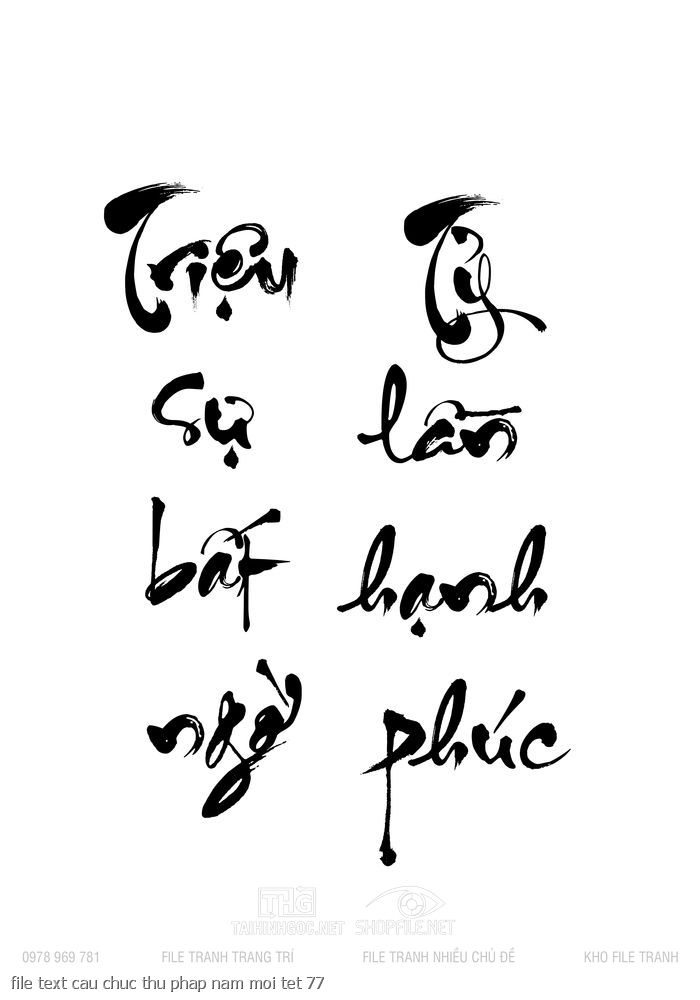 Triệu
sự
bất
ngờ
Tỷ
lần
hạnh
phúc
THG
TAIHINHGOC.NET
SHOPFILE.NET
0978 969 781
FILE TRANH TRANG TRÍ
FILE TRANH NHIỀU CHỦ ĐỀ
KHO FILE TRANH
file text cau chuc thu phap nam moi tet 77